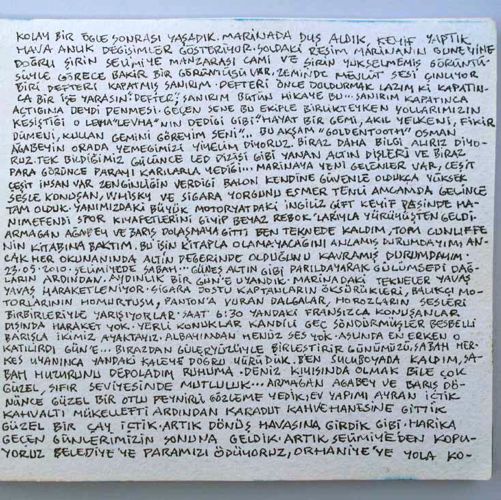 KOLAY BİR ÖĞLE SONRASI YAŞADIK. MARİNADA DUŞ ALDIK, KEYİF YAPTIK
HAVA ANLIK DEĞİŞİMLER GÖSTERİYOR. SOLDAKİ RESİM MARİNANIN GÜNEYİNE
DOĞRU ŞİRİN SELİMİYE MANZARASI CAMİ VE ŞİRİN YÜKSELMEMİŞ GÖRÜNTÜ-
SÜYLE GÖRECE BAKİR BİR GÖRÜNTÜSÜ VAR. ZEMİNDE MEVLÜT SESİ ÇINLIYOR
BİRİ DEFTERİ KAPATMIŞ SANIRIM. DEFTERİ ÖNCE DOLDURMAK LAZIM Kİ KAPATIN-
CA BİR İŞE YARASIN: DEFTER; SANIRIM BÜTÜN HİKAYE BU... SANIRIM KAPATINCA
AÇTIĞINA DEYDİ DENMESİ. GEÇEN SENE BU EKİPLE BİRLİKTEYKEN YOLLARIMIZIN
KESİŞTİĞİ O LEHA "LEVHA"NIN DEDİĞİ GİBİ "HAYAT BİR GEMİ, AKIL YELKENİ, FİKİR
DÜMENİ, KULLAN GEMİNİ GÖREYİM SENİ"... BU AKŞAM "GOLDENTOOTH" OSMAN
AĞABEYİN ORADA YEMEĞİMİZİ YİYELİM DİYORUZ. BİRAZ DAHA BİLGİ ALIRIZ DİYO-
RUZ. TEK BİLDİĞİMİZ GÜLÜNCE LED DİZİSİ GİBİ YANAN ALTIN DİŞLERİ VE BİRAZ
PARA GÖRÜNCE PARAYI KARILARLA YEDİĞİ... MARİNAYA YENİ GELENLER VAR, ÇEŞİT
ÇEŞİT İNSAN VAR ZENGİNLİĞİN VERDİĞİ BALON KENDİNE GÜVENLE OLDUKÇA YÜKSEK
SESLE KONUŞAN, WHISKY VE SİGARA YORGUNU ESMER TENLİ AMCAMDA GELİNCE
TAM OLDUK. YANIMIZDAKİ BÜYÜK MOTORYATDAKİ İNGİLİZ ÇİFT KEYİF PAŞİNDE HA-
NIMEFENDİ SPOR KIYAFETLERİNİ GİYİP BEYAZ REBOK'LARIYLA YÜRÜYÜŞTEN GELDİ.
ARMAĞAN AĞABEY VE BARIŞ DOLAŞMAYA GİTTİ BEN TEKNEDE KALDIM, TOM CUNLIFFE
NİN KİTABINA BAKTIM. BU İŞİN KİTAPLA OLAMAYACAĞINI ANLAMIŞ DURUMDAYIM AN-
CAK HER OKUNANINDA ALTIN DEĞERİNDE OLDUĞUNU KAVRAMIŞ DURUMDAYIM.
23.05.2010. SELİMİYEDE SABAH... GÜNEŞ ALTIN GİBİ PARILDAYARAK GÜLÜMSEDİ DAĞ-
LARIN ARDINDAN, AYDINLIK BİR GÜN'E UYANDIK. MARİNADAKİ TEKNELER YAVAŞ
YAVAŞ HAREKETLENİYOR. SİGARA DOSTU KAPTANLARIN ÖKSÜRÜKLERİ, BALIKÇI MO-
TORLARININ HOMURTUSU, PANTON'A VURAN DALGALAR, HOROZLARIN SESLERİ
BİRBİRLERİYLE YARIŞIYORLAR. SAAT 6:30 YANDAKİ FRANSIZCA KONUŞANLAR
DIŞINDA HARAKET YOK. YERLİ KONUKLAR KANDİLİ GEÇ SÖNDÜRMÜŞLER BESBELLİ
BARIŞLA İKİMİZ AYAKTAYIZ. ALBAYINDAN HENÜZ SES YOK. ASLINDA EN ERKEN O
KATILIRDI GÜNE... BİRAZDAN GÜLERYÜZÜYLE BİRLEŞTİRİR GÜNÜMÜZÜ. SABAH HER-
KES UYANINCA YANDAKİ KALEYE DOĞRU YÜRÜDÜK. BEN SULUBOYADA KALDIM, SA-
BAH HUZURUNU DEPOLADIM RUHUMA. DENİZ KIYISINDA OLMAK BİLE ÇOK
GÜZEL, SIFIR SEVİYESİNDE MUTLULUK... ARMAĞAN AĞABEY VE BARIŞ DÖ-
NÜNCE GÜZEL BİR OTLU PEYNİRLİ GÖZLEME YEDİK, EV YAPIMI AYRAN İÇTİK
KAHVALTI MÜKELLEFTİ ARDINDAN KARADUT KAHVEHANESİNE GİTTİK
GÜZEL BİR ÇAY İÇTİK. ARTIK DÖNÜŞ HAVASINA GİRDİK GİBİ. HARİKA
GEÇEN GÜNLERİMİZİN SONUNA GELDİK. ARTIK SELİMİYE'DEN KOPU-
YORUZ BELEDİYE'YE PARAMIZI ÖDÜYORUZ, ORHANİYE'YE YOLA KO-